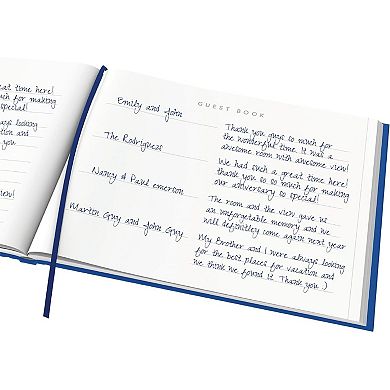 at time here!
much for making
so special!
ays looking
cation and
k you
iew!
GUEST BOOK
Emily and John
Thank you guys so much for
the wonderful time. It was a
awesome room with awesome view!
The Rodriguess
We had such a great time here!
thank you so so much for making
our aniversary so special!
Nancy & Paul emerson
The room and the view gave us
an unforgetable memory and we
will definitley come again next year
Martin Guy and John Guy
My Brother and I were always looking
for the best places for vacation and
we think we found it. Thank you :)